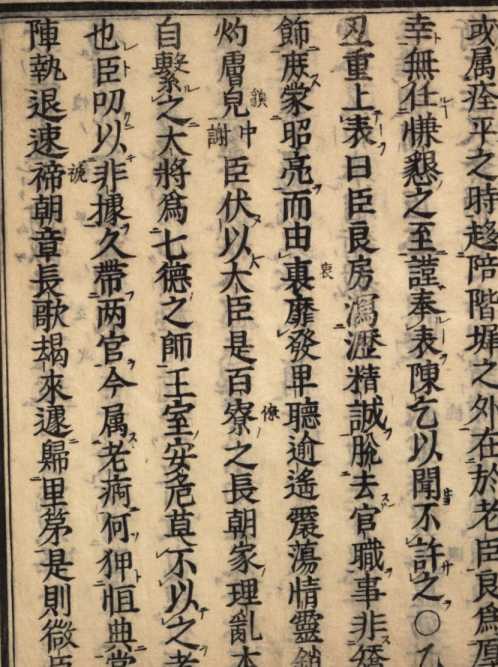 或属痊平之時趍陪階墀之外在於老臣良爲原
幸無任慊懇之至謹奉表陳乞以聞不許之〇
丑重上表曰臣良房瀉瀝精誠脫去官職事非
飾庶蒙昭亮而由衷靡發卑聽逾遙震蕩情靈
灼膚皃中謝臣伏以大臣是百寮之長朝家理亂
自繫之大將爲七德之師王室安危莫不以之
也臣叨以非據久帶两官今属老病何狎恒典
陣執退速褅朝章長歌朅來遽歸里苐是則微臣